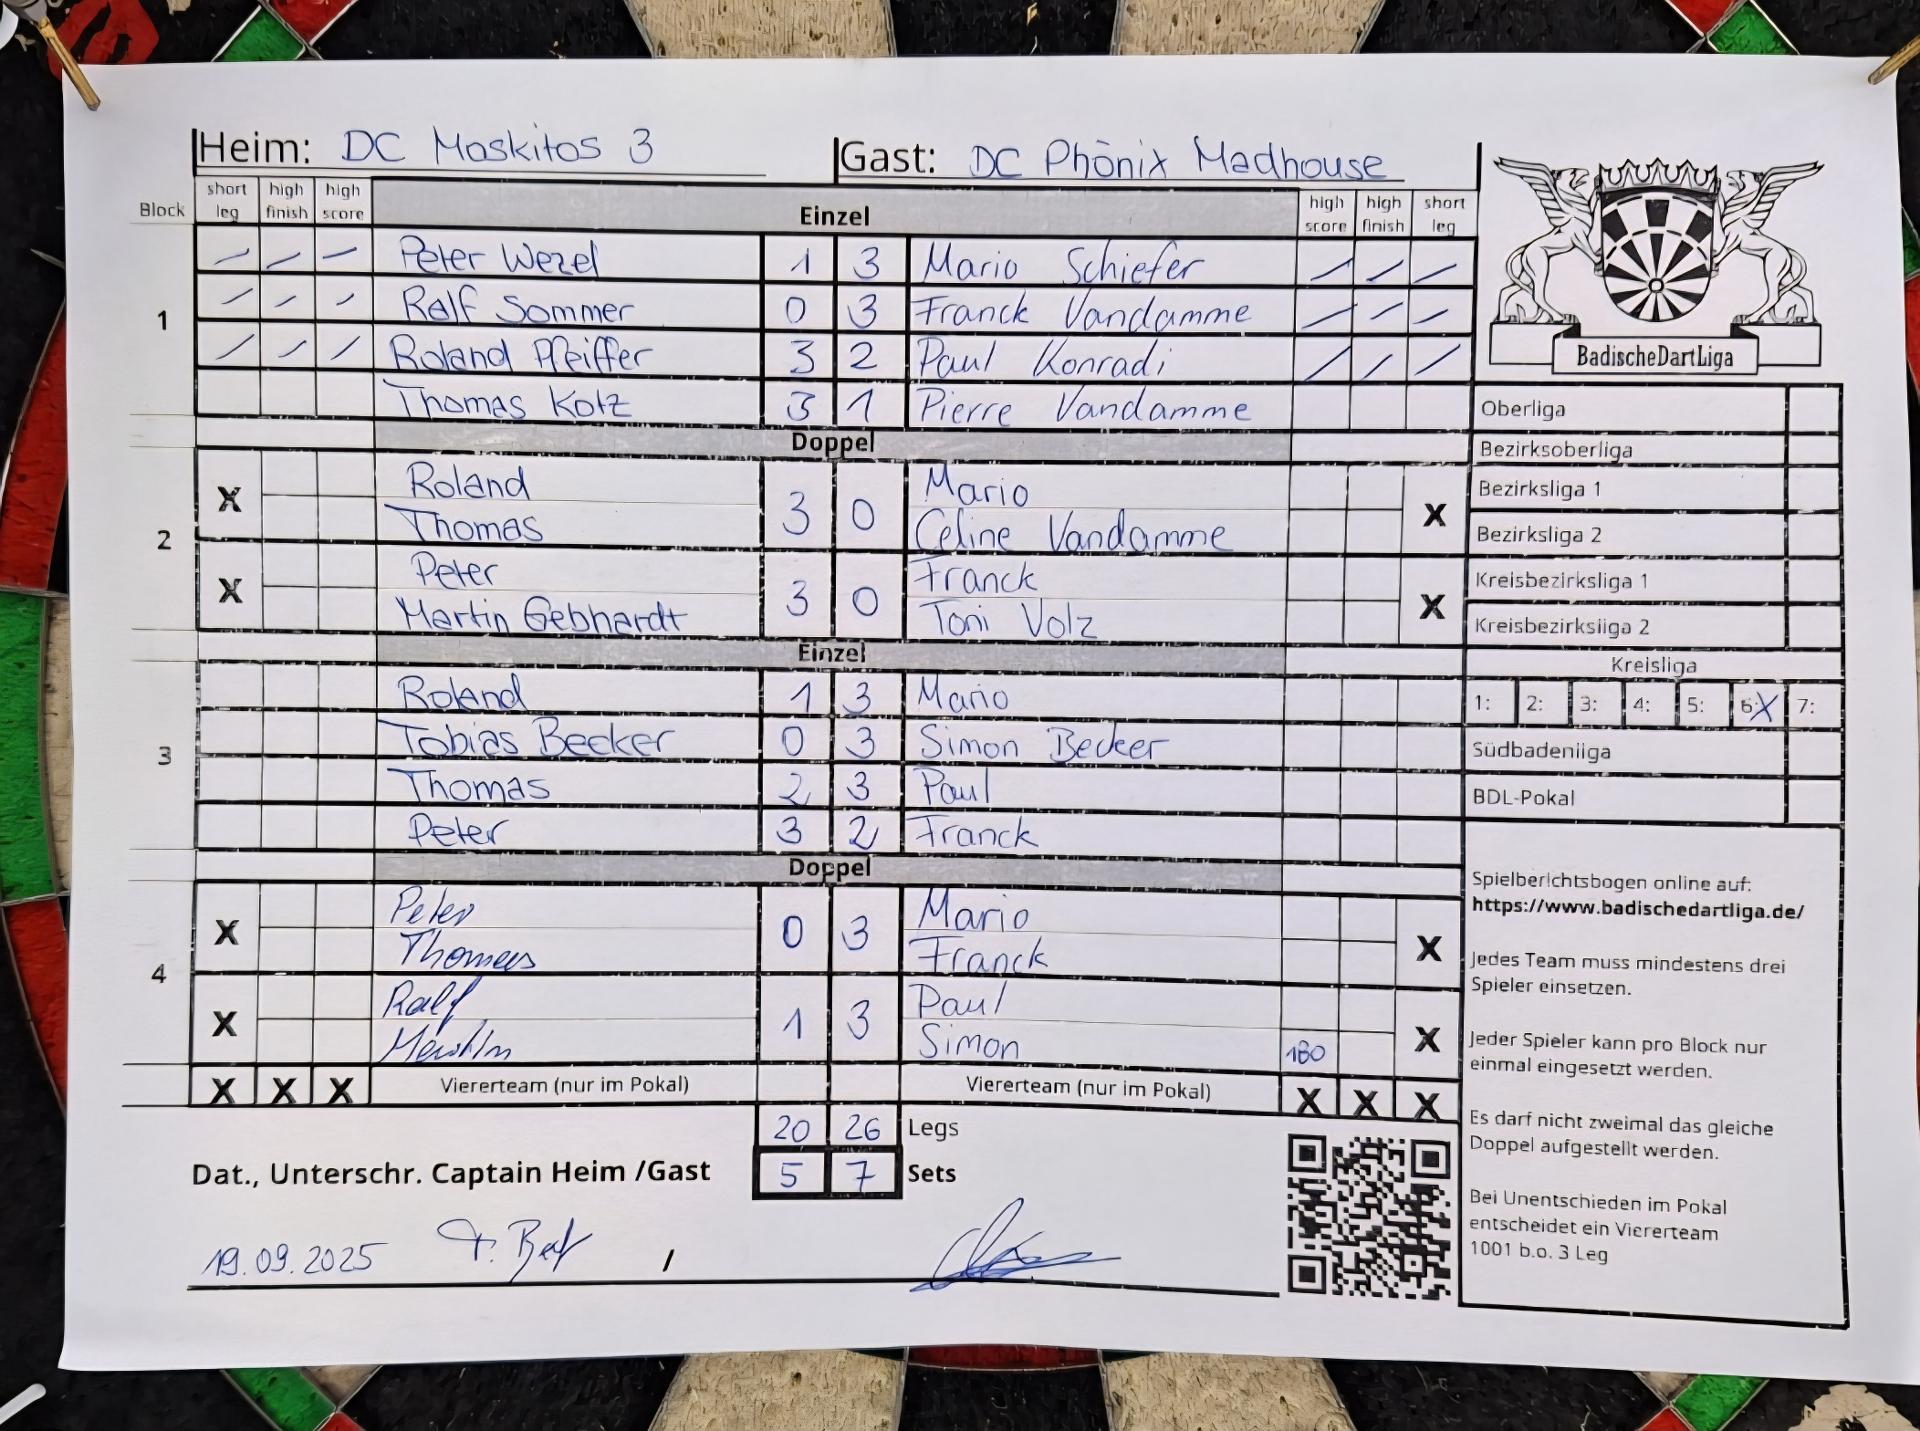 Heim: DC Moskitos 3 Gast: DC Phönix Madhouse
Block short leg high finish high score Einzel high score high finish short leg
1
Peter Wezel 1 3 Mario Schiefer
Ralf Sommer 0 3 Franck Vandamme
Roland Pfeiffer 3 2 Paul Konradi
Thomas Kotz 3 1 Pierre Vandamme
Doppel
2
X Roland 3 0 Mario X
Thomas Celine Vandamme
X Peter 3 0 Franck X
Martin Gebhardt Toni Volz
Einzel
3
Roland 1 3 Mario
Tobias Becker 0 3 Simon Becker
Thomas 2 3 Paul
Peter 3 2 Franck
Doppel
4
X Peter 0 3 Mario X
Thomas Franck
X Ralf 1 3 Paul X
Martin Simon 180
X X X Viererteam (nur im Pokal) Viererteam (nur im Pokal) X X X
20 26 Legs
Dat., Unterschr. Captain Heim /Gast 5 7 Sets
19.09.2025 /
BadischeDartLiga
Oberliga
Bezirksoberliga
Bezirksliga 1
Bezirksliga 2
Kreisbezirksliga 1
Kreisbezirksliga 2
Kreisliga
1: 2: 3: 4: 5: 6: X 7:
Südbadenliga
BDL-Pokal
Spielberichtsbogen online auf:
https://www.badischedartliga.de/
Jedes Team muss mindestens drei
Spieler einsetzen.
Jeder Spieler kann pro Block nur
einmal eingesetzt werden.
Es darf nicht zweimal das gleiche
Doppel aufgestellt werden.
Bei Unentschieden im Pokal
entscheidet ein Viererteam
1001 b.o. 3 Leg